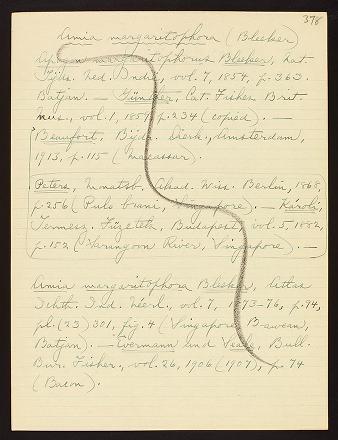 378
Amia margaritophora (Bleeker)
Apogon margaritophorus Bleeker, Nat.
Tijds. Ned. Indië, vol. 7, 1854, p. 363.
Batjan. — Günther, Cat. Fishes Brit.
Mus., vol. 1, 1859, p. 234 (copied). —
Beaufort, Bijdr. Dierk., Amsterdam,
1913, p. 115 (Macassar).
Peters, Monatsb. Akad. Wiss. Berlin, 1868,
p. 256 (Pulo biani, Singapore). — Károli,
Termesz. Füzetek, Budapest, vol. 5, 1882,
p. 152 (Serangoon River, Singapore). —
Amia margaritophora Bleeker, Atlas
Ichth. Ind. Néerl., vol. 7, 1873-76, p. 94,
pl. (23) 301, fig. 4 (Singapore, Bawean,
Batjan). — Evermann and Seale, Bull.
Bur. Fisher., vol. 26, 1906 (1907), p. 74
(Bacon).